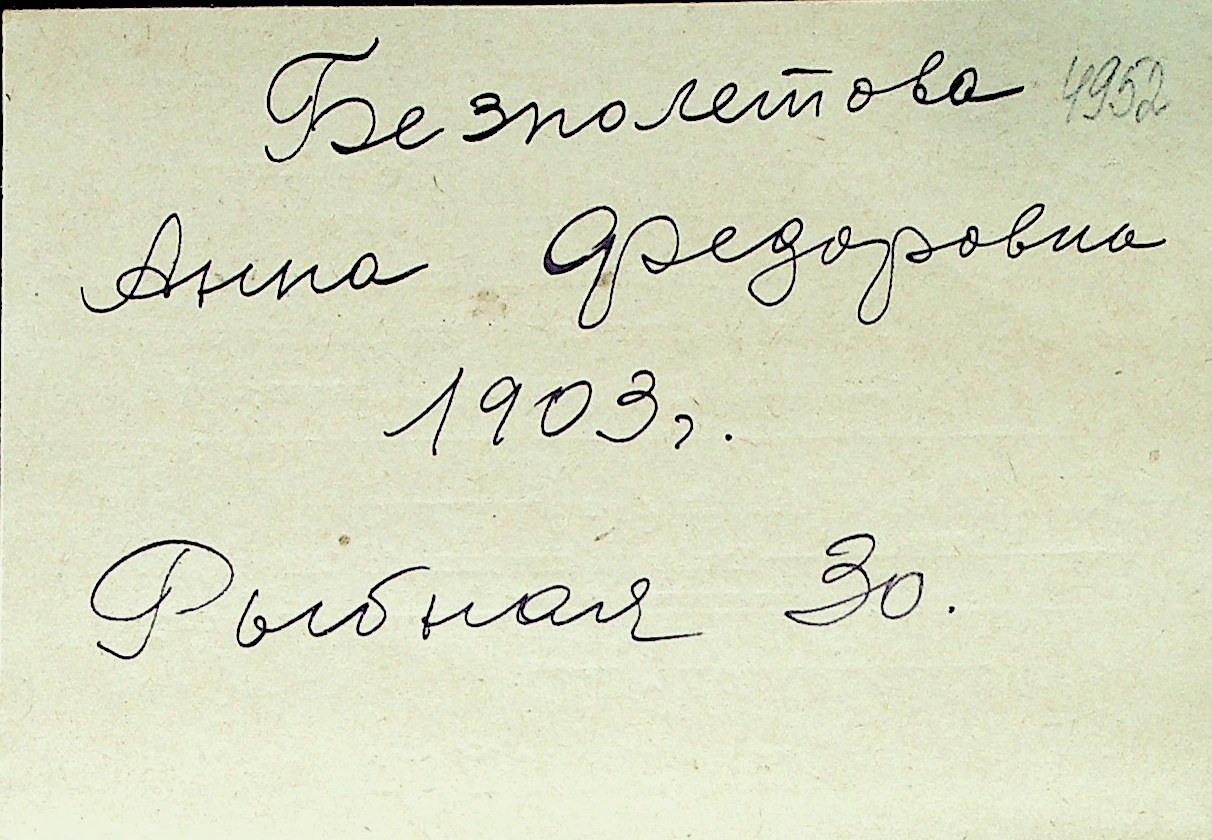 Безполетова 4952
Анна Федоровна
1903г.
Рыбная 30.